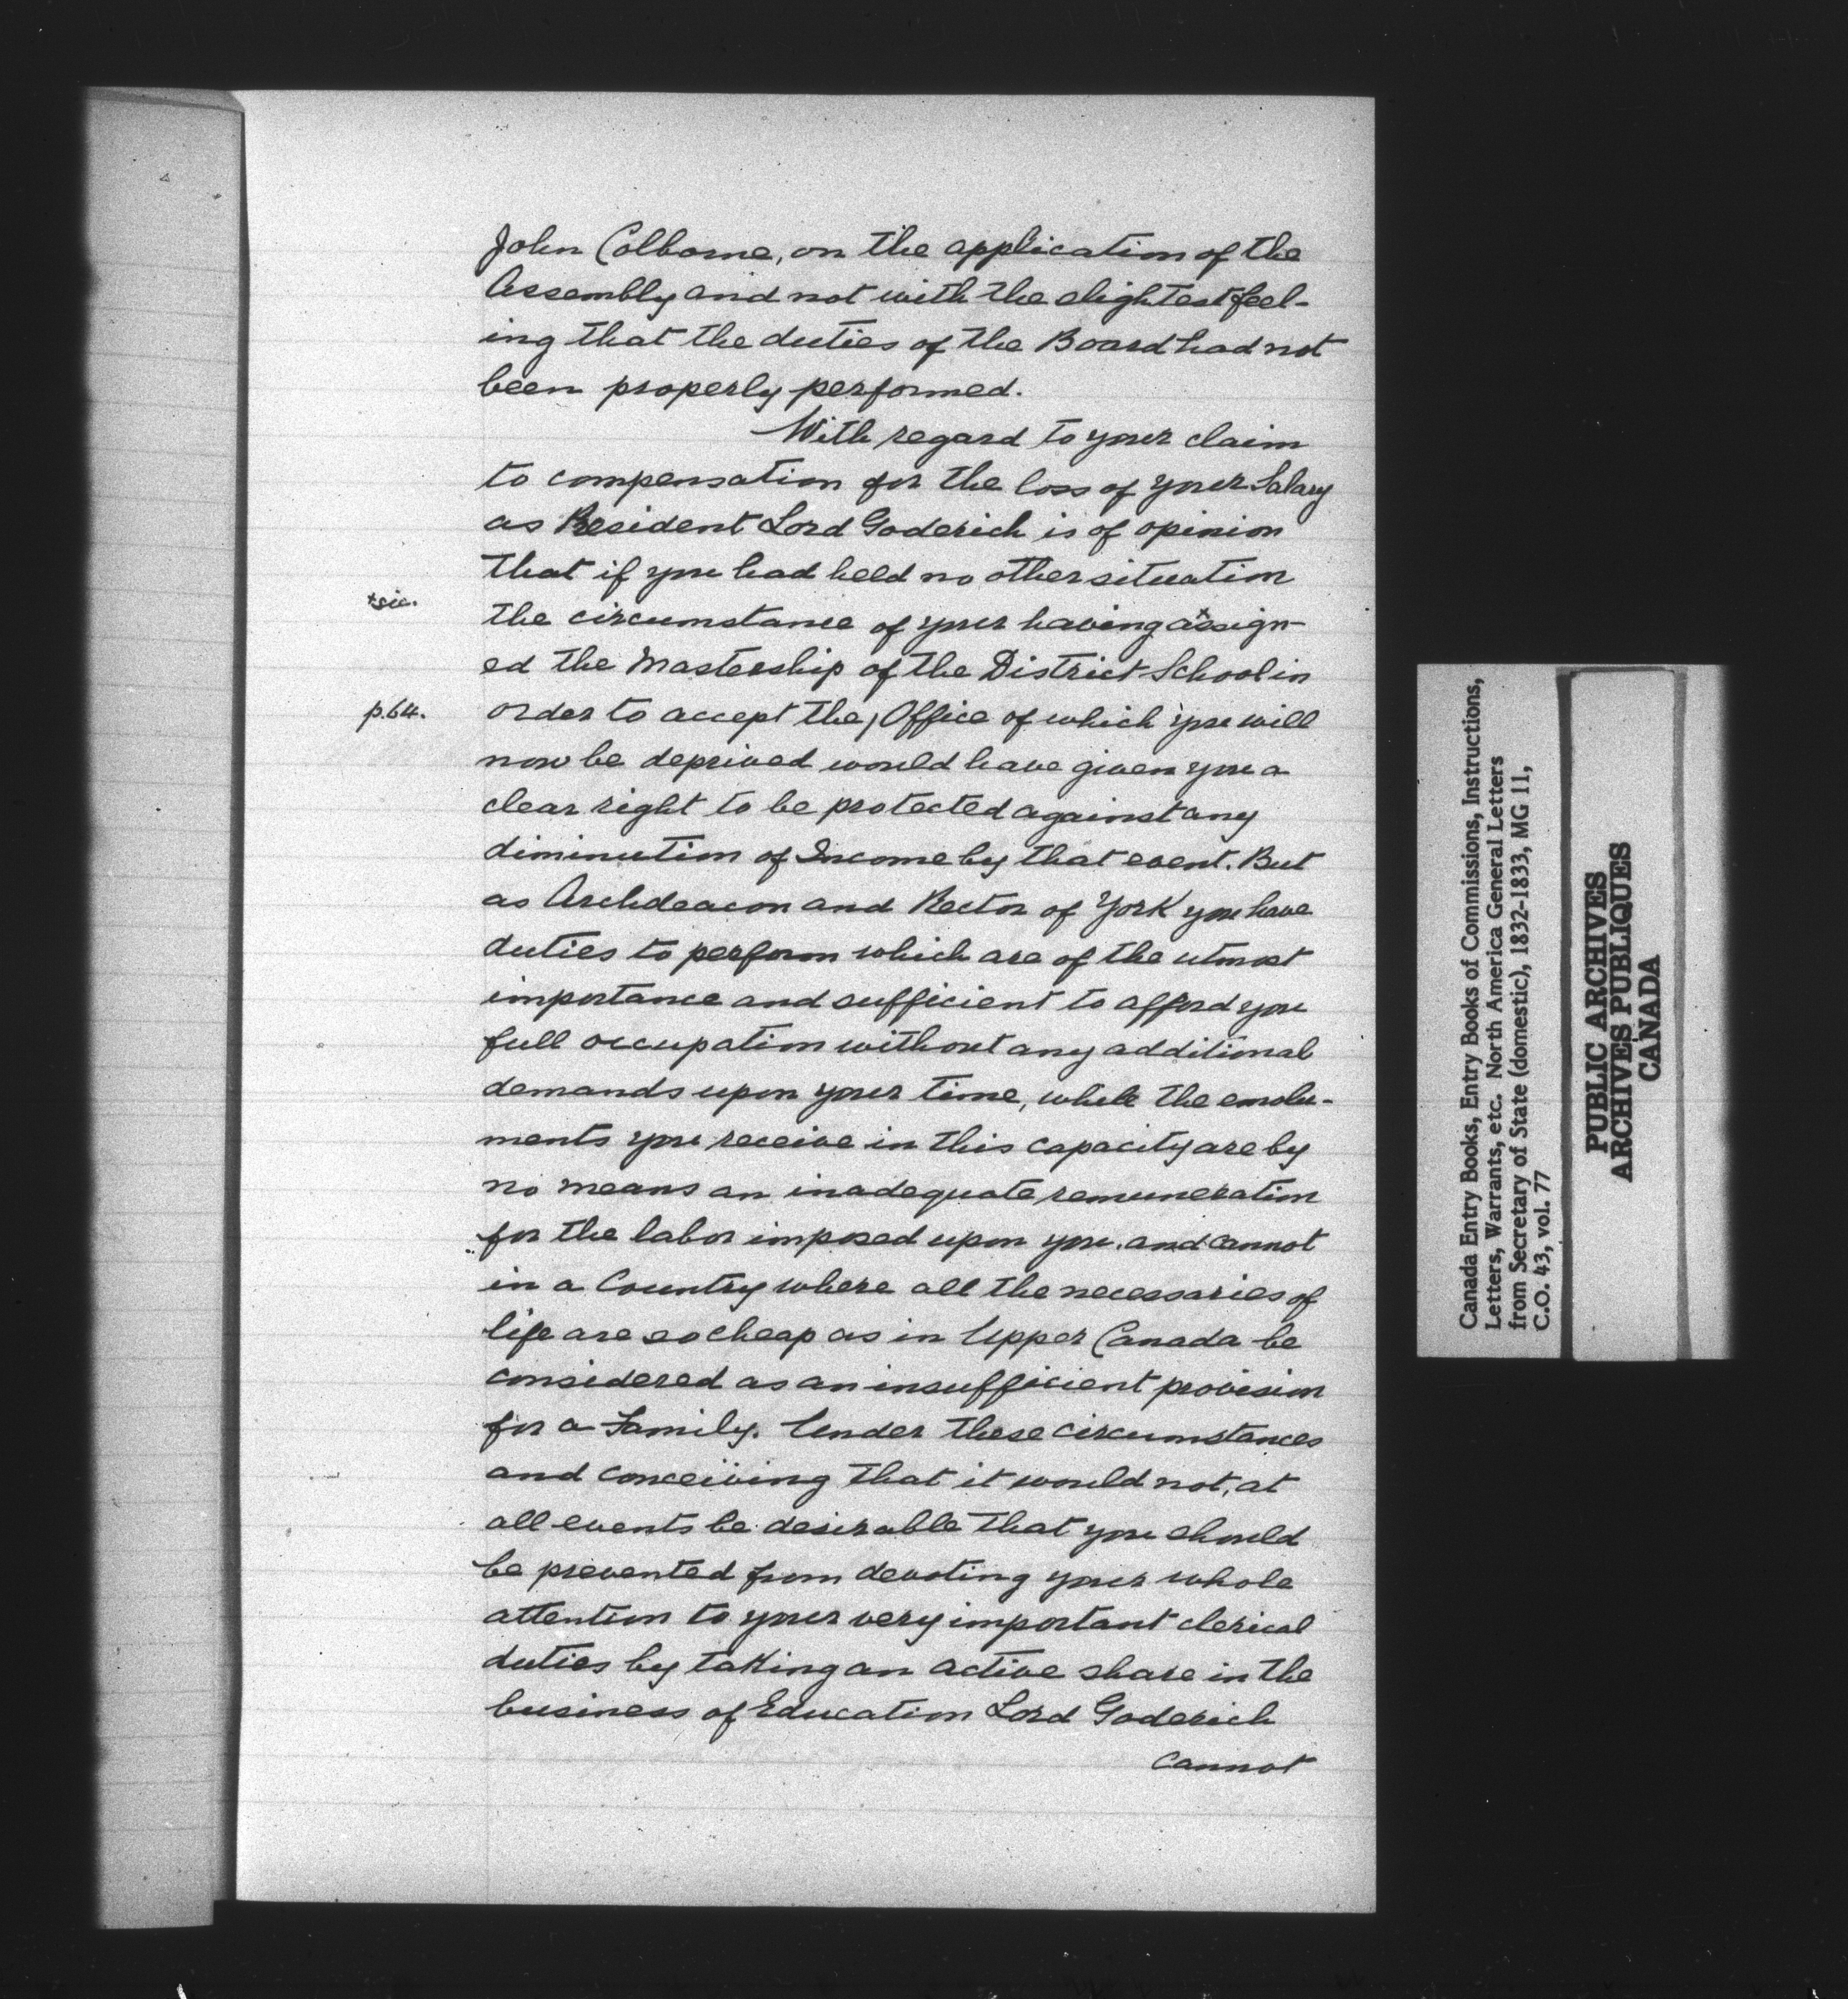 John Colborne, on the application of the
Assembly and not with the slightest feel-
ing that the duties of the Board had not
been properly performed.
With regard to your claim
to compensation for the loss of your Salary
as President Lord Goderich is of opinion
that if you had held no other situation
+sic.
the circumstance of your having assign-
ed the Mastership of the District School in
p.64.
order to accept the, Office of which you will
now be deprived would have given you a
clear right to be protected against any
diminution of Income by that event. But
as Archdeacon and Rector of York you have
duties to perform which are of the utmost
importance and sufficient to afford you
full occupation without any additional
demands upon your time, while the emolu-
ments you receive in this capacity are by
no means an inadequate remuneration
for the labor imposed upon you, and cannot
in a Country where all the necessaries of
life are so cheap as in Upper Canada be
considered as an insufficient provision
for a Family. Under these circumstances
and conceiving that it would not, at
all events be desirable that you should
be prevented from devoting your whole
attention to your very important clerical
duties by taking an active share in the
business of Education Lord Goderich
cannot
Canada Entry Books, Entry Books of Commissions, Instructions,
Letters, Warrants, etc. North America General Letters
from Secretary of State (domestic), 1832-1833, MG 11,
C.O. 43, vol. 77
PUBLIC ARCHIVES
ARCHIVES PUBLIQUES
CANADA